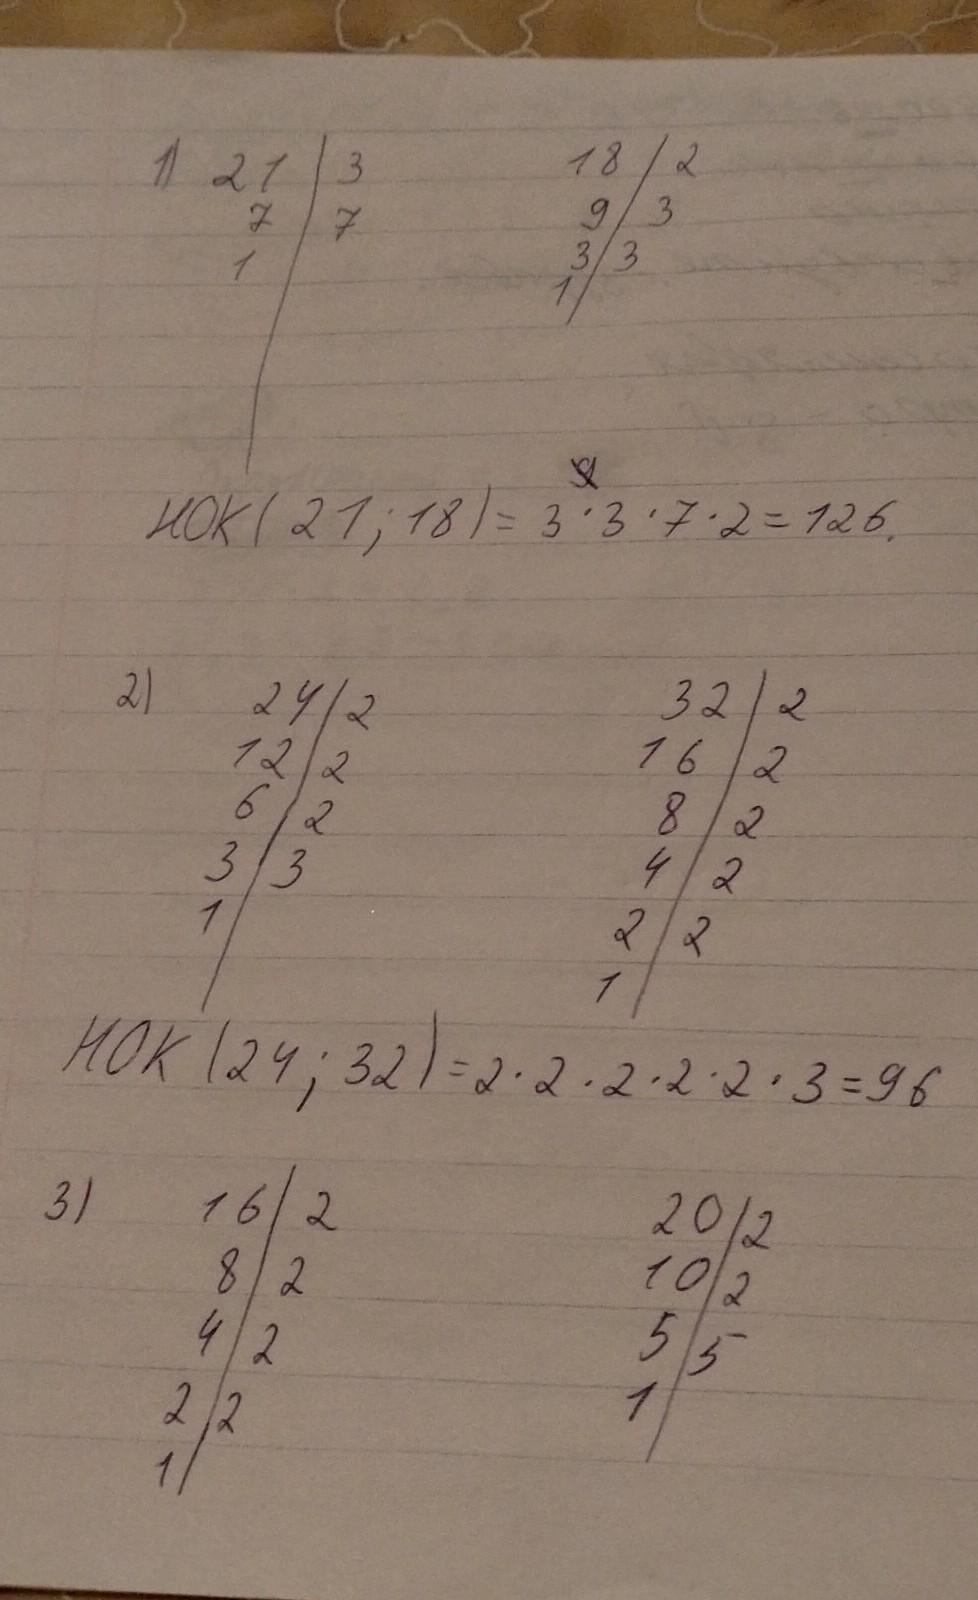 1) 21 | 3 18 | 2
7 | 7 9 | 3
1 3 | 3
1
НОК(21;18)=3·3·7·2=126.
2) 24 | 2 32 | 2
12 | 2 16 | 2
6 | 2 8 | 2
3 | 3 4 | 2
1 2 | 2
1
НОК(24;32)=2·2·2·2·2·3=96
3) 16 | 2 20 | 2
8 | 2 10 | 2
4 | 2 5 | 5
2 | 2 1
1